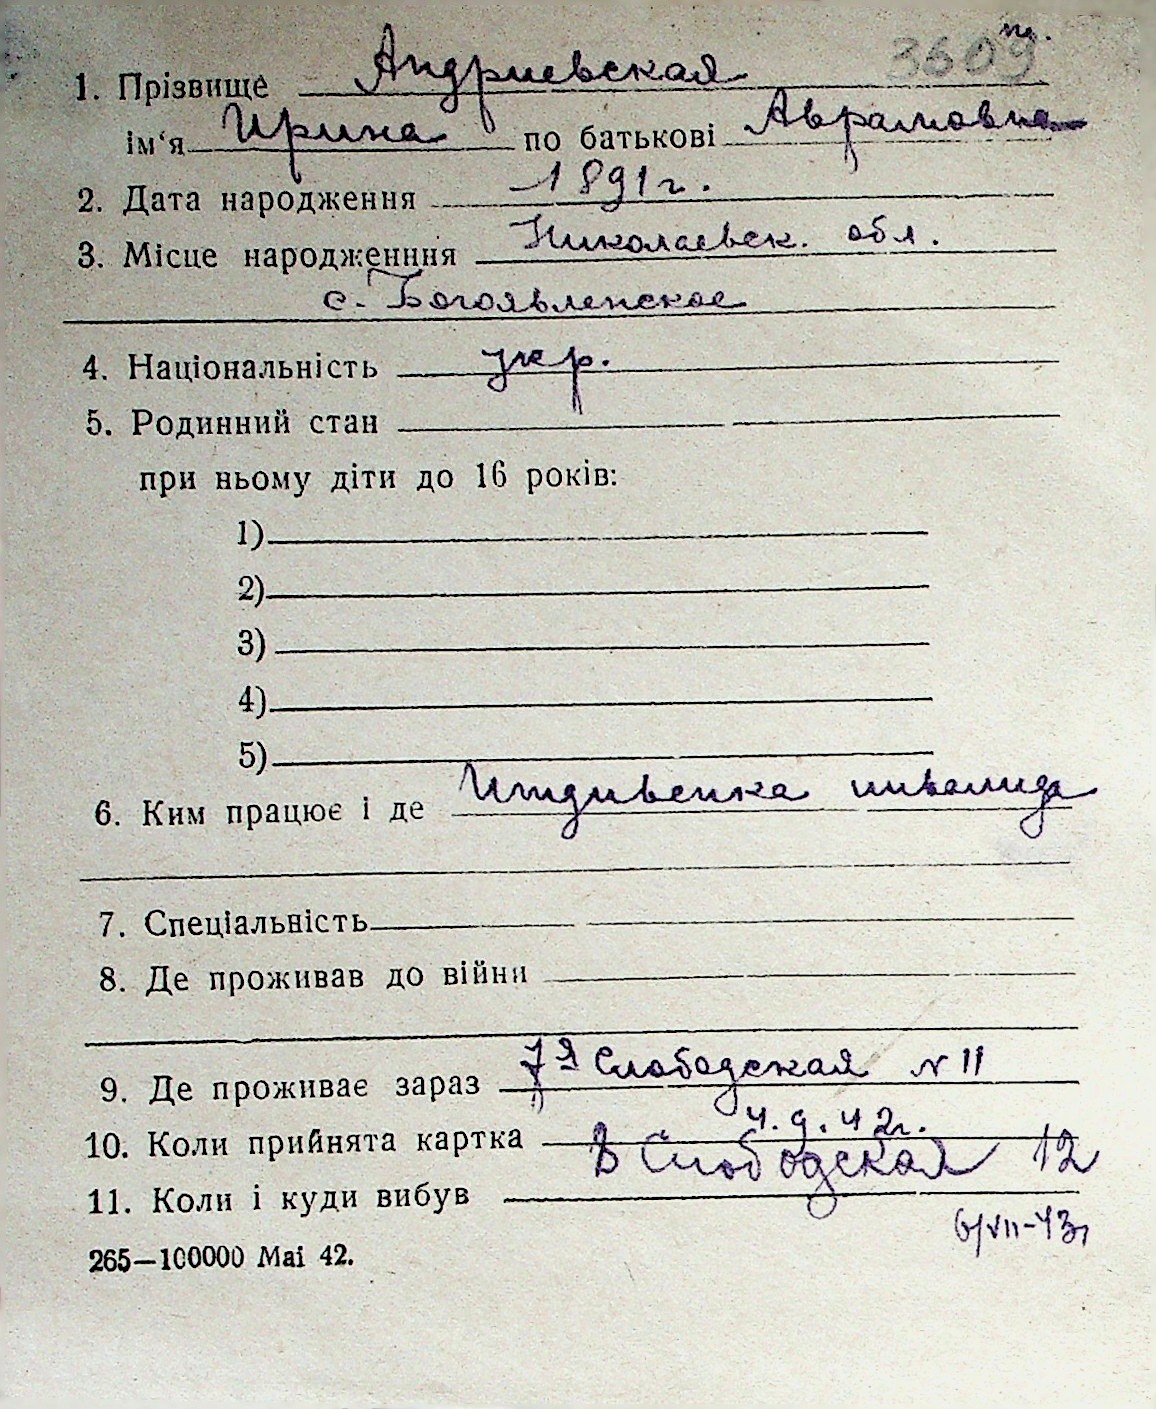 3609
1. Прізвище Андриевская
ім'я Ирина по батькові Аврамовна
2. Дата народження 1891 г.
3. Місце народженння Николаевск. обл.
с. Богоявленское
4. Національність укр.
5. Родинний стан
при ньому діти до 16 років:
1)
2)
3)
4)
5)
6. Ким працює і де Иждивенка инвалида
7. Спеціальність
8. Де проживав до війни
9. Де проживає зараз 7я Слободская N 11
10. Коли прийнята картка 4.9.42г.
Слободская 12
11. Коли і куди вибув
6/VII-43г
265—100000 Mai 42.